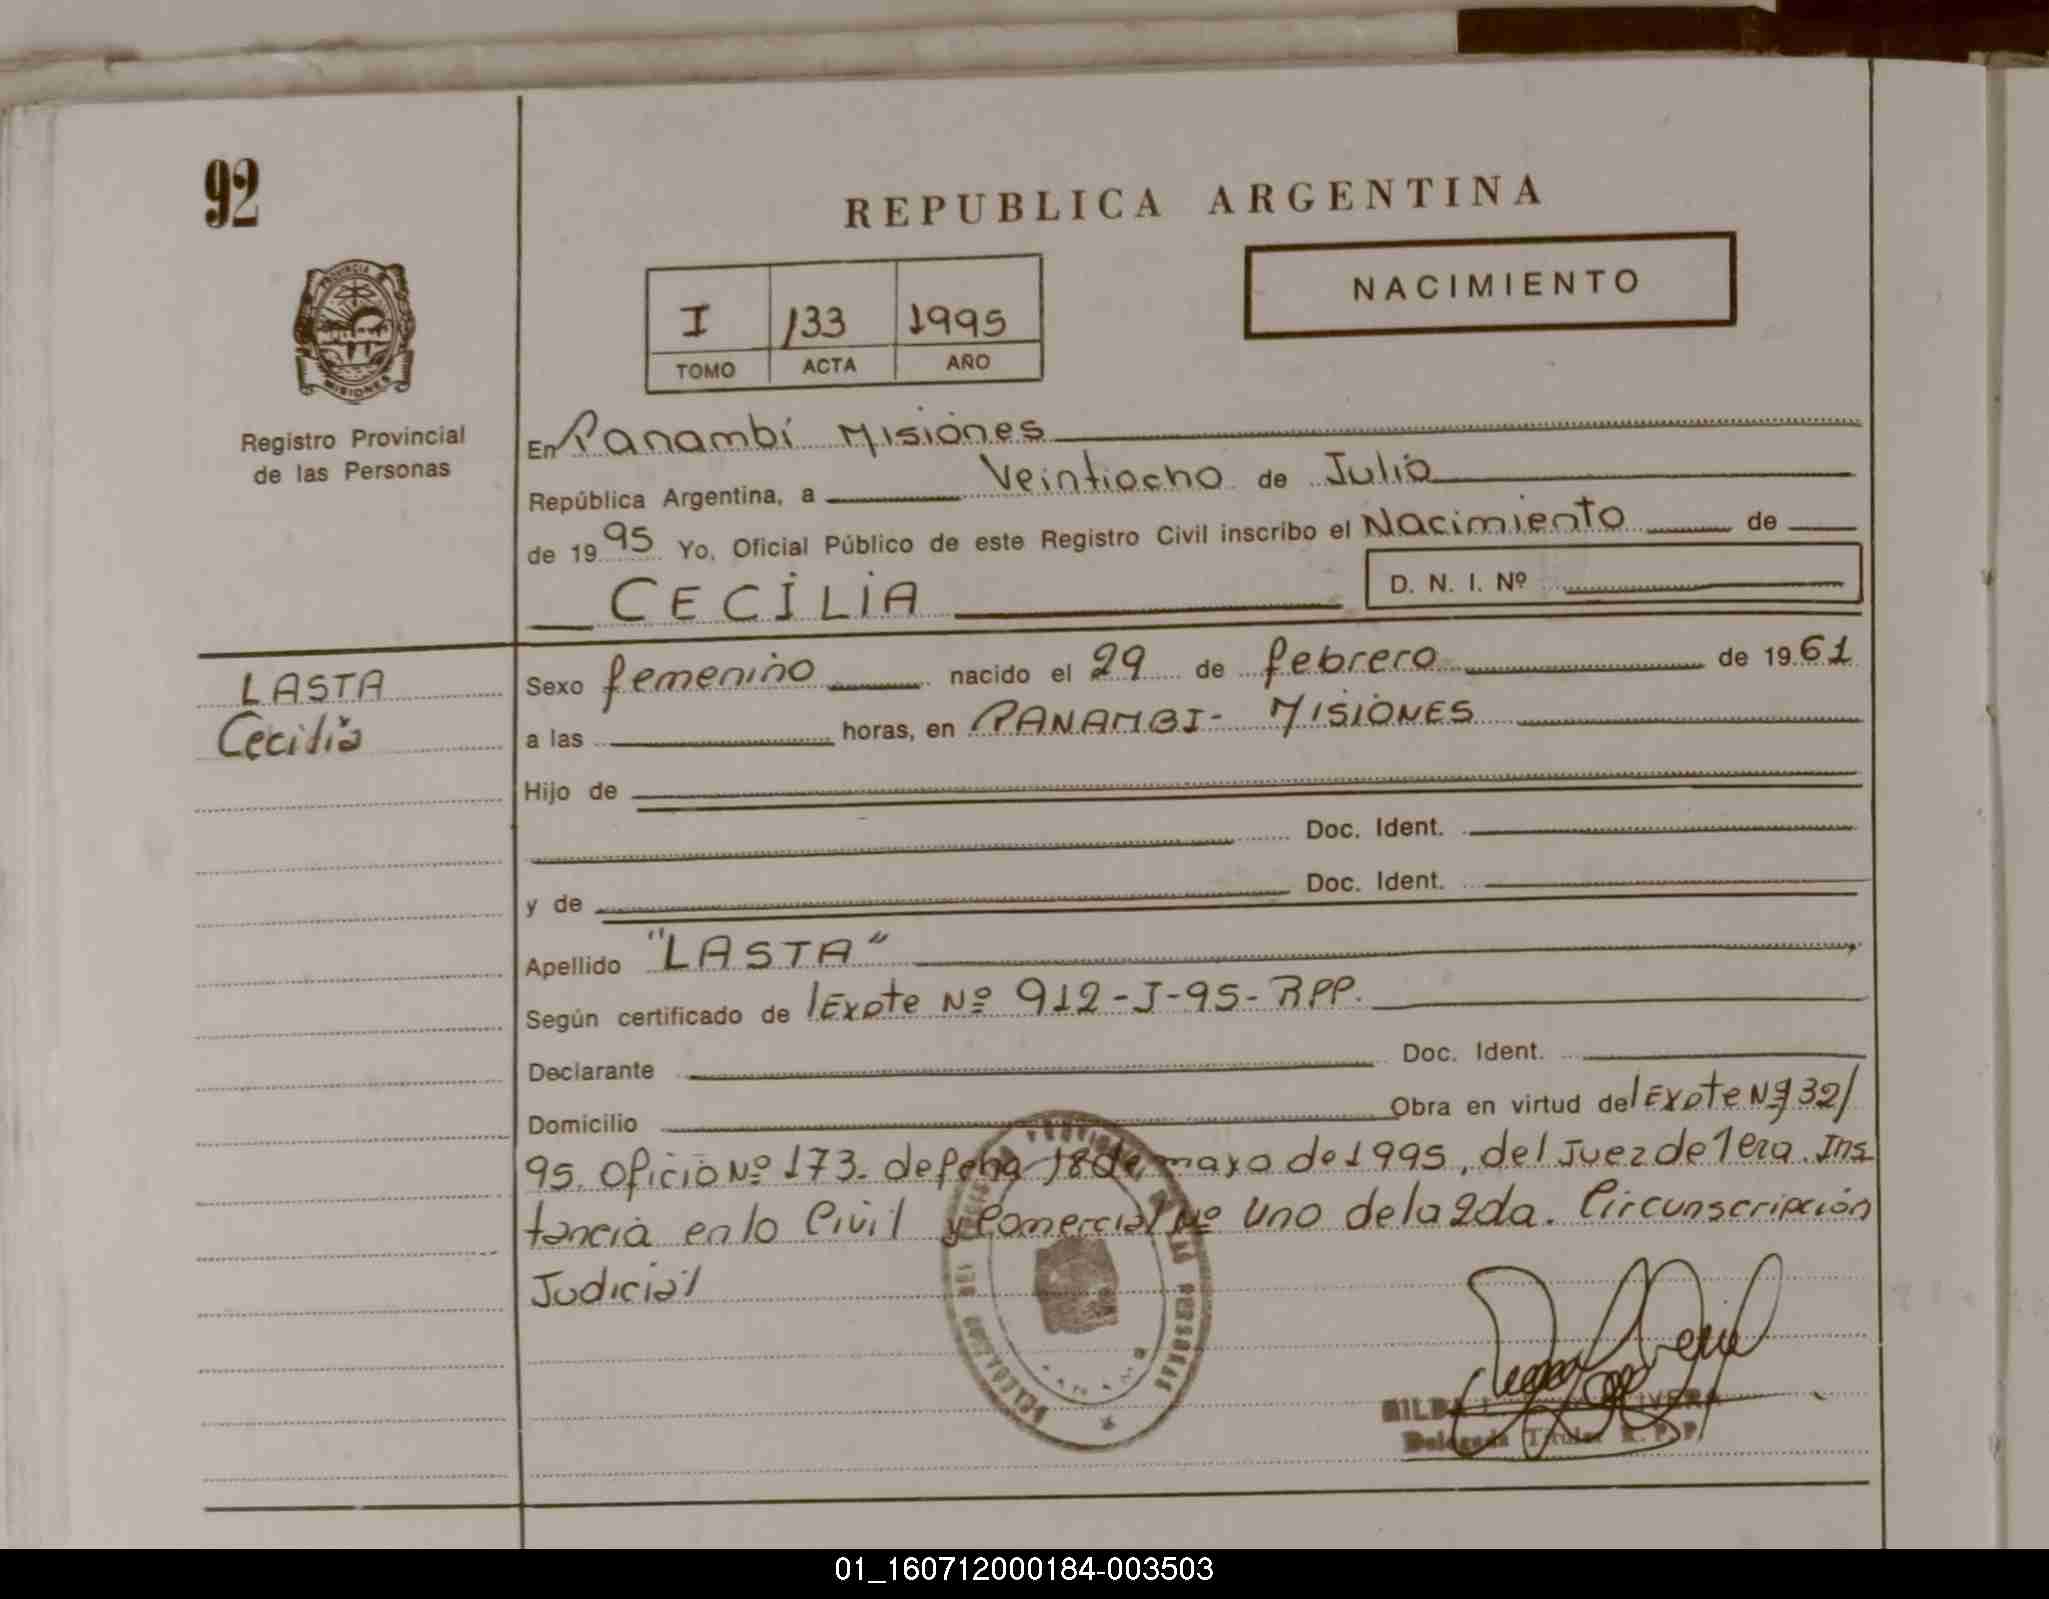 92
REPUBLICA ARGENTINA
NACIMIENTO
I 133 1995
TOMO ACTA AÑO
PROVINCIA DE MISIONES
Registro Provincial
de las Personas
En Panambí Misiones
República Argentina, a Veintiocho de Julio
de 1995 Yo, Oficial Público de este Registro Civil inscribo el Nacimiento de
CECILIA D. N. I. Nº
LASTA
Cecilia
Sexo femenino nacido el 29 de febrero de 1961
a las horas, en PANAMBI- MISIONES
Hijo de
Doc. Ident.
y de Doc. Ident.
Apellido "LASTA"
Según certificado de Expte Nº 912-J-95- RPP.
Declarante Doc. Ident.
Domicilio Obra en virtud del Expte Nº 32/
95. Oficio Nº 173. de fecha 18 de mayo de 1995, del Juez de 1era. Ins
tancia en lo Civil y Comercial Nº Uno de la 2da. Circunscripción
Judicial
Delegada Titular R. P. P.
01_160712000184-003503